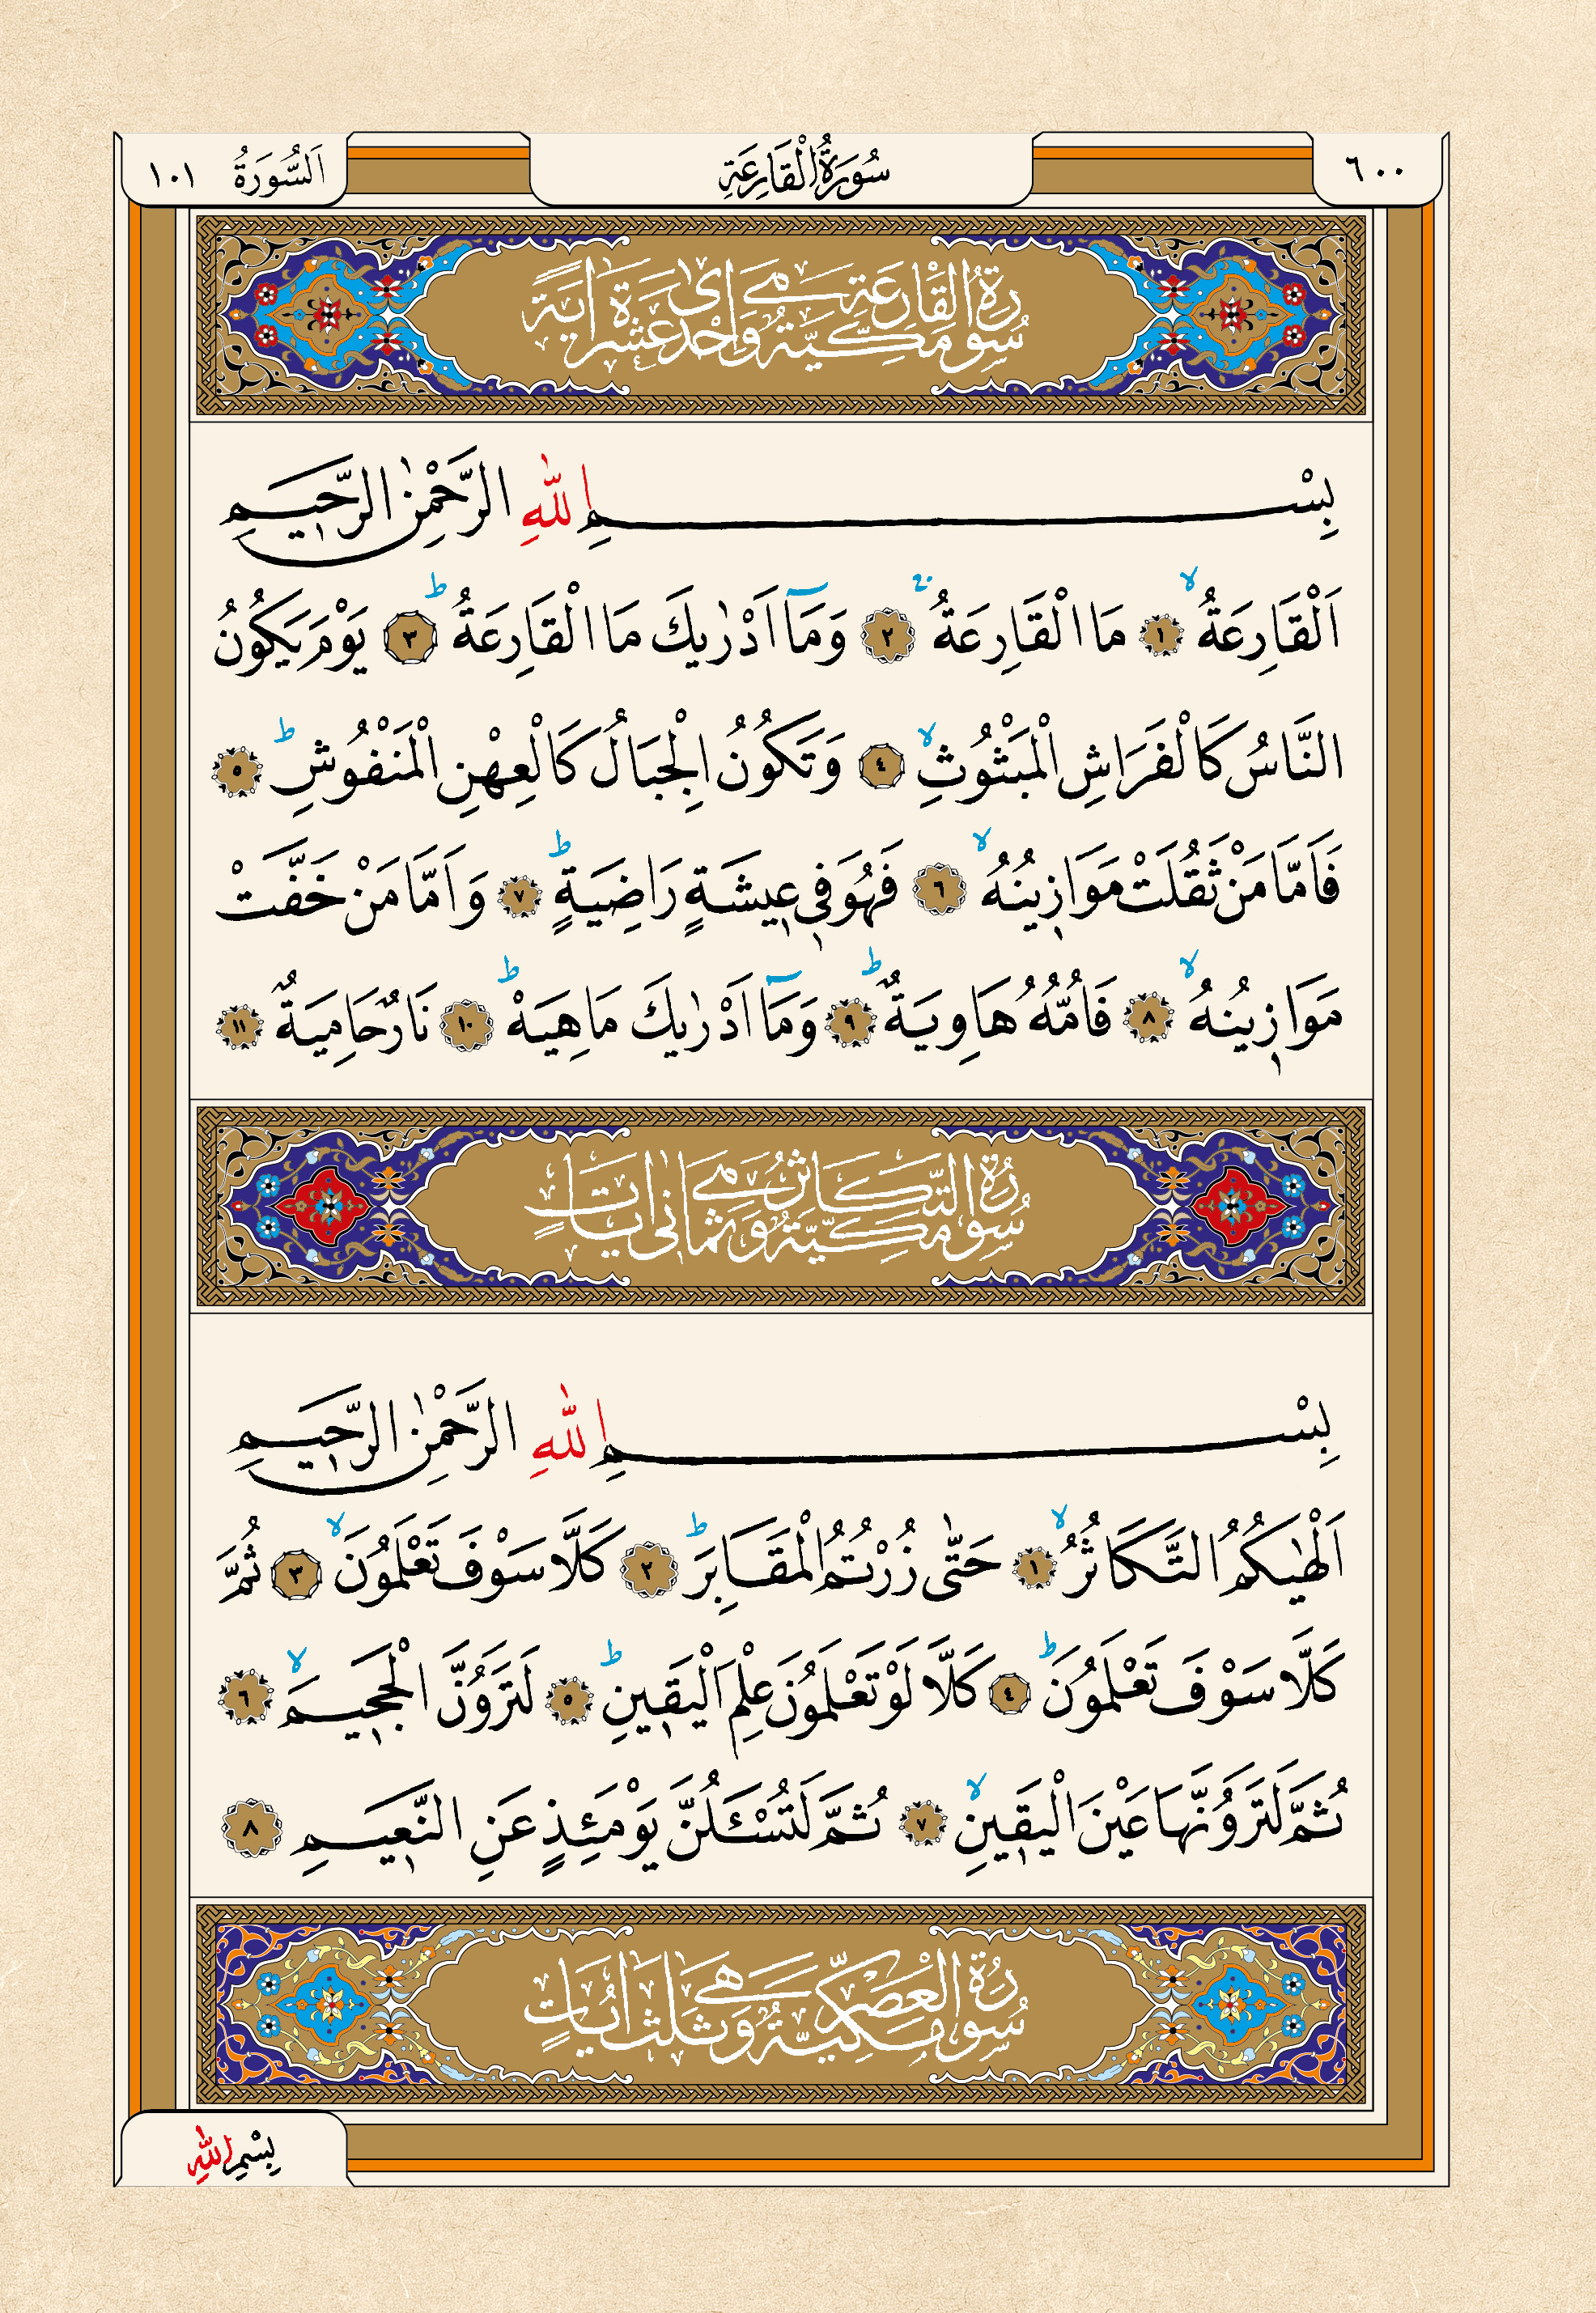 ٦٠٠
سُورَةُ الْقَارِعَةِ
اَلسُّورَةُ ١٠١
سُورَةُ الْقَارِعَةِ مَكِّيَّةٌ وَهِيَ اِحْدٰى عَشْرَةَ اٰيَةً
بِسْمِ اللّٰهِ الرَّحْمٰنِ الرَّح۪يمِ
اَلْقَارِعَةُۙ ﴿١﴾ مَا الْقَارِعَةُۚ ﴿٢﴾ وَمَٓا اَدْرٰيكَ مَا الْقَارِعَةُۜ ﴿٣﴾ يَوْمَ يَكُونُ
النَّاسُ كَالْفَرَاشِ الْمَبْثُوثِۙ ﴿٤﴾ وَتَكُونُ الْجِبَالُ كَالْعِهْنِ الْمَنْفُوشِۜ ﴿٥﴾
فَاَمَّا مَنْ ثَقُلَتْ مَوَاز۪ينُهُۙ ﴿٦﴾ فَهُوَ ف۪ي ع۪يشَةٍ رَاضِيَةٍۜ ﴿٧﴾ وَاَمَّا مَنْ خَفَّتْ
مَوَاز۪ينُهُۙ ﴿٨﴾ فَاُمُّهُ هَاوِيَةٌۜ ﴿٩﴾ وَمَٓا اَدْرٰيكَ مَا هِيَهْۜ ﴿١٠﴾ نَارٌ حَامِيَةٌ ﴿١١﴾
سُورَةُ التَّكَاثُرِ مَكِّيَّةٌ وَهِيَ ثَمَانِي اٰيَاتٍ
بِسْمِ اللّٰهِ الرَّحْمٰنِ الرَّح۪يمِ
اَلْهٰيكُمُ التَّكَاثُرُۙ ﴿١﴾ حَتّٰى زُرْتُمُ الْمَقَابِرَۜ ﴿٢﴾ كَلَّا سَوْفَ تَعْلَمُونَۙ ﴿٣﴾ ثُمَّ
كَلَّا سَوْفَ تَعْلَمُونَۜ ﴿٤﴾ كَلَّا لَوْ تَعْلَمُونَ عِلْمَ الْيَق۪ينِۜ ﴿٥﴾ لَتَرَوُنَّ الْجَح۪يمَۙ ﴿٦﴾
ثُمَّ لَتَرَوُنَّهَا عَيْنَ الْيَق۪ينِۙ ﴿٧﴾ ثُمَّ لَتُسْـَٔلُنَّ يَوْمَئِذٍ عَنِ النَّع۪يمِ ﴿٨﴾
سُورَةُ الْعَصْرِ مَكِّيَّةٌ وَهِيَ ثَلٰثُ اٰيَاتٍ
بِسْمِ اللّٰهِ